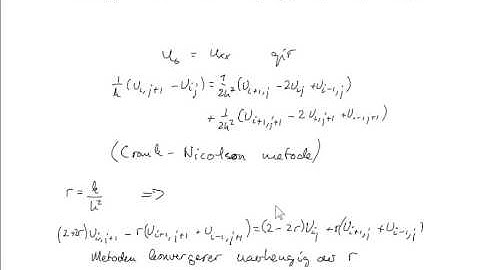 u_t = u_xx gir
1/k (U_i,j+1 − U_ij) = 1/2h² (U_i+1,j − 2U_ij + U_i−1,j)
+ 1/2h² (U_i+1,j+1 − 2U_i,j+1 + U_i−1,j+1)
(Crank-Nicolson metode)
r = k/h² =>
(2+2r)U_i,j+1 − r(U_i+1,j+1 + U_i−1,j+1) = (2−2r)U_ij + r(U_i+1,j + U_i−1,j)
Metoden konvergerer uavhengig av r